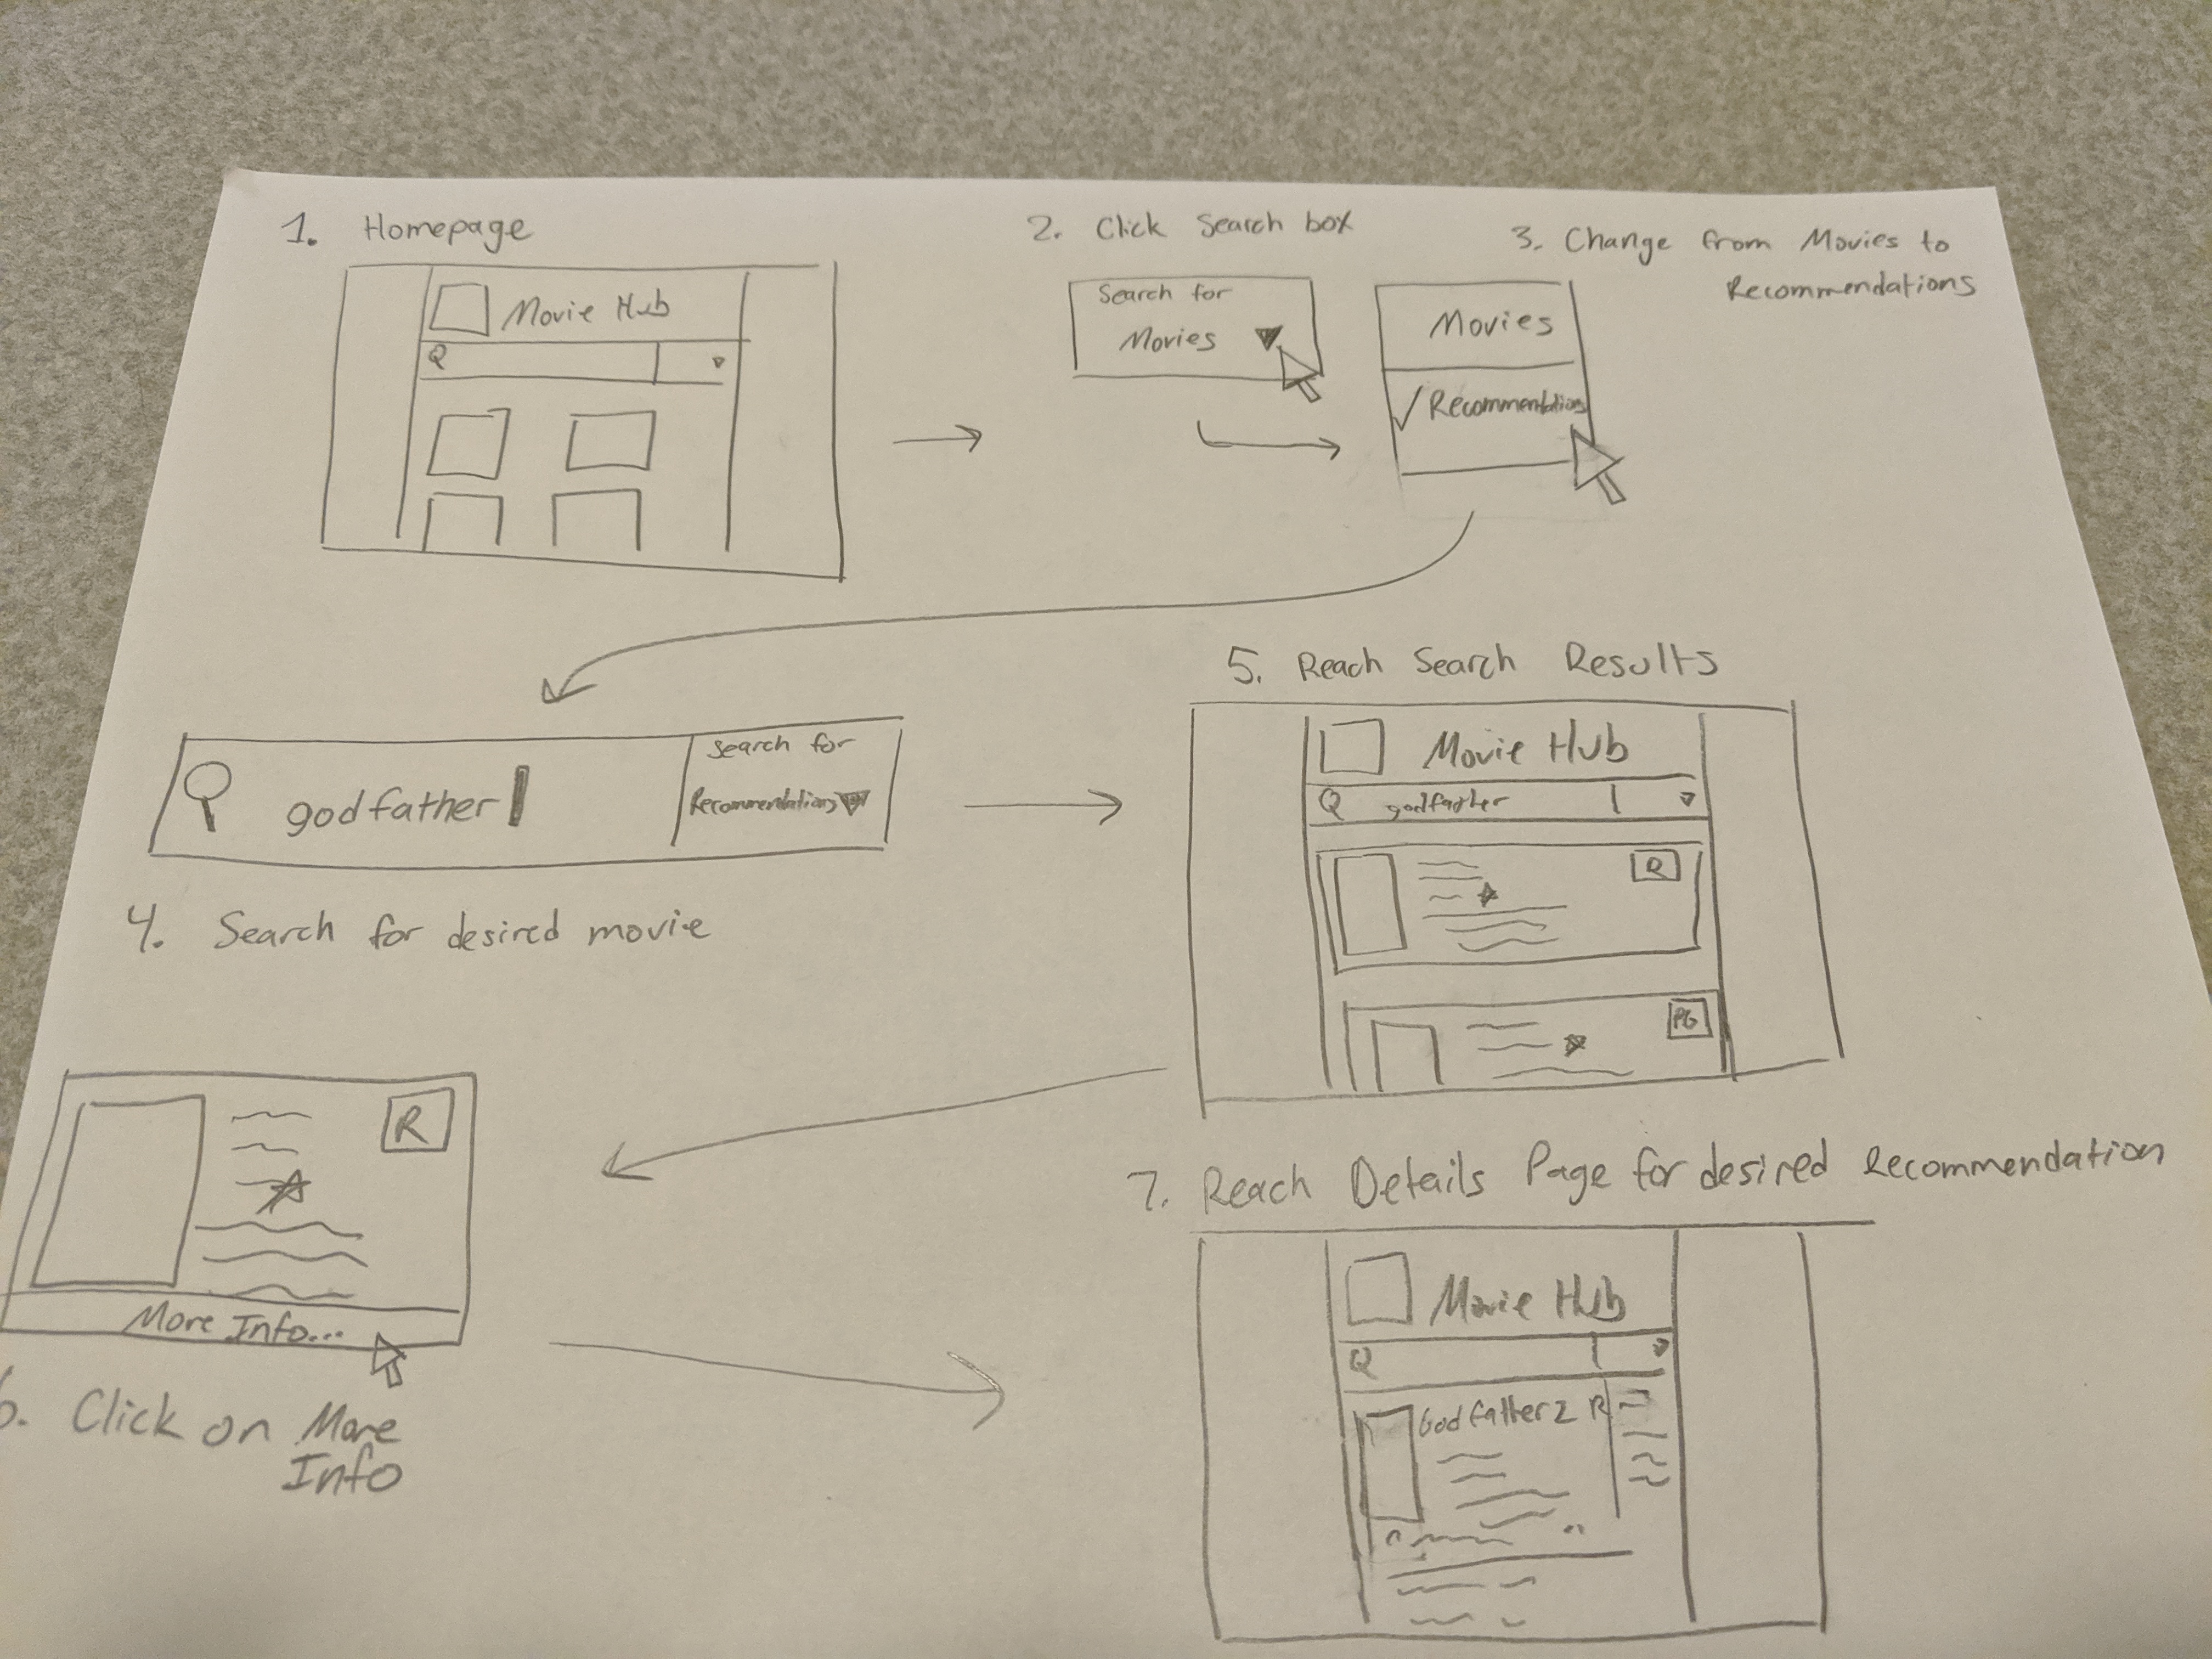 1. Homepage
Movie Hub
2. Click Search box
Search for
Movies
3. Change from Movies to
Recommendations
Movies
✓ Recommendations
godfather
Search for
Recommendations
4. Search for desired movie
5. Reach Search Results
Movie Hub
godfather
R
PG
R
More Info...
6. Click on More
Info
7. Reach Details Page for desired Recommendation
Movie Hub
Godfather 2 R